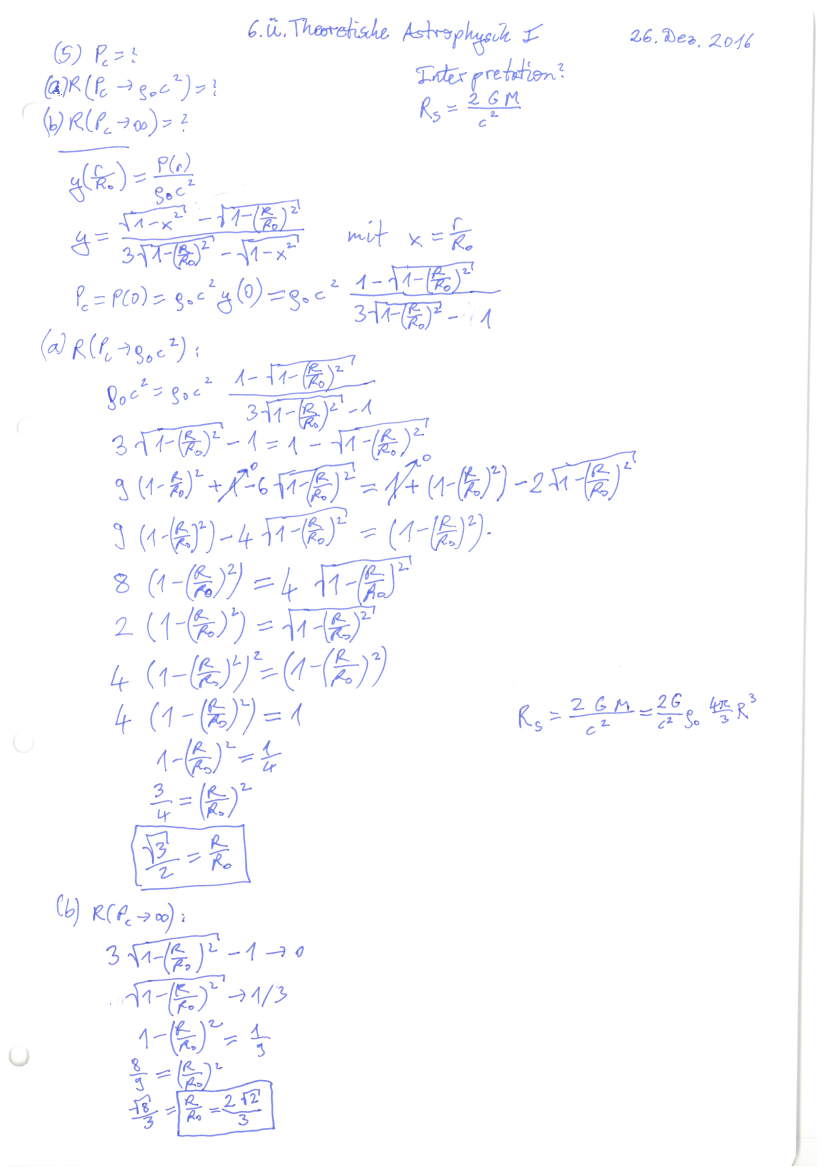 6. Ü. Theoretische Astrophysik I
26. Dez. 2016
(5) P_c = ?
(a) R(P_c → ρ₀c²) = ?
(b) R(P_c → ∞) = ?
Interpretation?
R_S = 2GM/c²
y(r/R₀) = P(r)/(ρ₀c²)
y = (√(1-x²) - √(1-(R/R₀)²))/(3√(1-(R/R₀)²) - √(1-x²)) mit x = r/R₀
P_c = P(0) = ρ₀c² y(0) = ρ₀c² (1-√(1-(R/R₀)²))/(3√(1-(R/R₀)²) - 1)
(a) R(P_c → ρ₀c²):
ρ₀c² = ρ₀c² (1-√(1-(R/R₀)²))/(3√(1-(R/R₀)²) - 1)
3√(1-(R/R₀)²) - 1 = 1 - √(1-(R/R₀)²)
9(1-R/R₀)² + 1→0 - 6√(1-(R/R₀)²) = 1→0 + (1-(R/R₀)²) - 2√(1-(R/R₀)²)
9(1-(R/R₀)²) - 4√(1-(R/R₀)²) = (1-(R/R₀)²).
8(1-(R/R₀)²) = 4√(1-(R/R₀)²)
2(1-(R/R₀)²) = √(1-(R/R₀)²)
4(1-(R/R₀)²)² = (1-(R/R₀)²)
4(1-(R/R₀)²) = 1
R_S = 2GM/c² = 2G/c² ρ₀ 4π/3 R³
1-(R/R₀)² = 1/4
3/4 = (R/R₀)²
√3/2 = R/R₀
(b) R(P_c → ∞):
3√(1-(R/R₀)²) - 1 → 0
√(1-(R/R₀)²) → 1/3
1-(R/R₀)² = 1/9
8/9 = (R/R₀)²
√8/3 = R/R₀ = 2√2/3